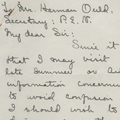 To Mr. Herman Ould,
Secretary: P.E.N.
My dear Sir:
Since it
that I may visit
late Summer or
information concerning
to avoid confusion
I should wish to